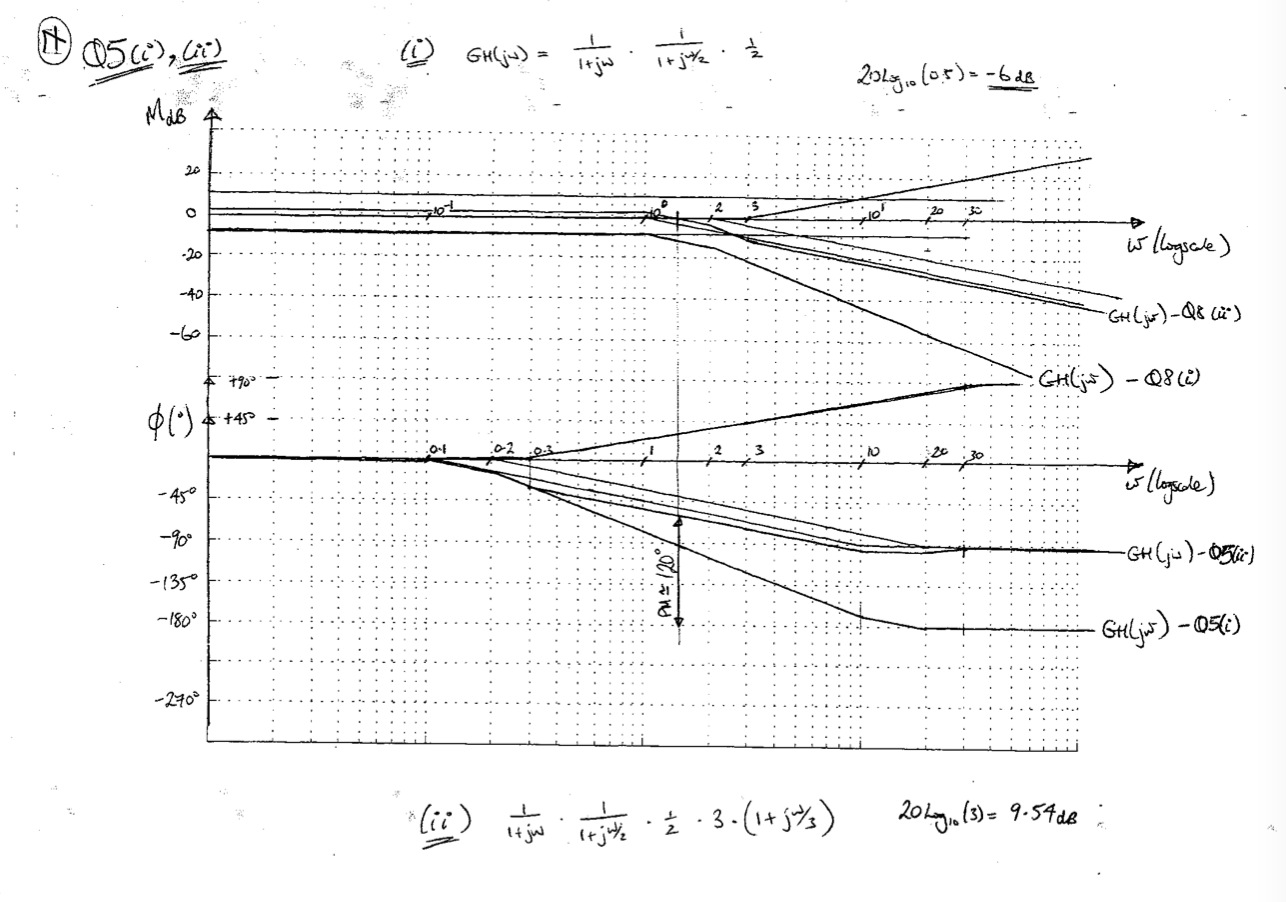 Q5(i), (ii)
(i) GH(jω) = 1/(1+jω) · 1/(1+jω/2) · 1/2
20Log₁₀(0.5) = -6dB
MdB
20
0
10⁻¹ 10⁰ 2 3 10¹ 20 30
ω (logscale)
-20
-40
-60
GH(jω) - Q8(ii)
GH(jω) - Q8(i)
+90°
φ(°) +45°
0.1 0.2 0.3 1 2 3 10 20 30
ω (logscale)
-45°
-90°
-135°
-180°
-270°
PM ≃ 120°
GH(jω) - Q5(ii)
GH(jω) - Q5(i)
(ii) 1/(1+jω) · 1/(1+jω/2) · 1/2 · 3 · (1+jω/3)
20Log₁₀(3) = 9.54dB